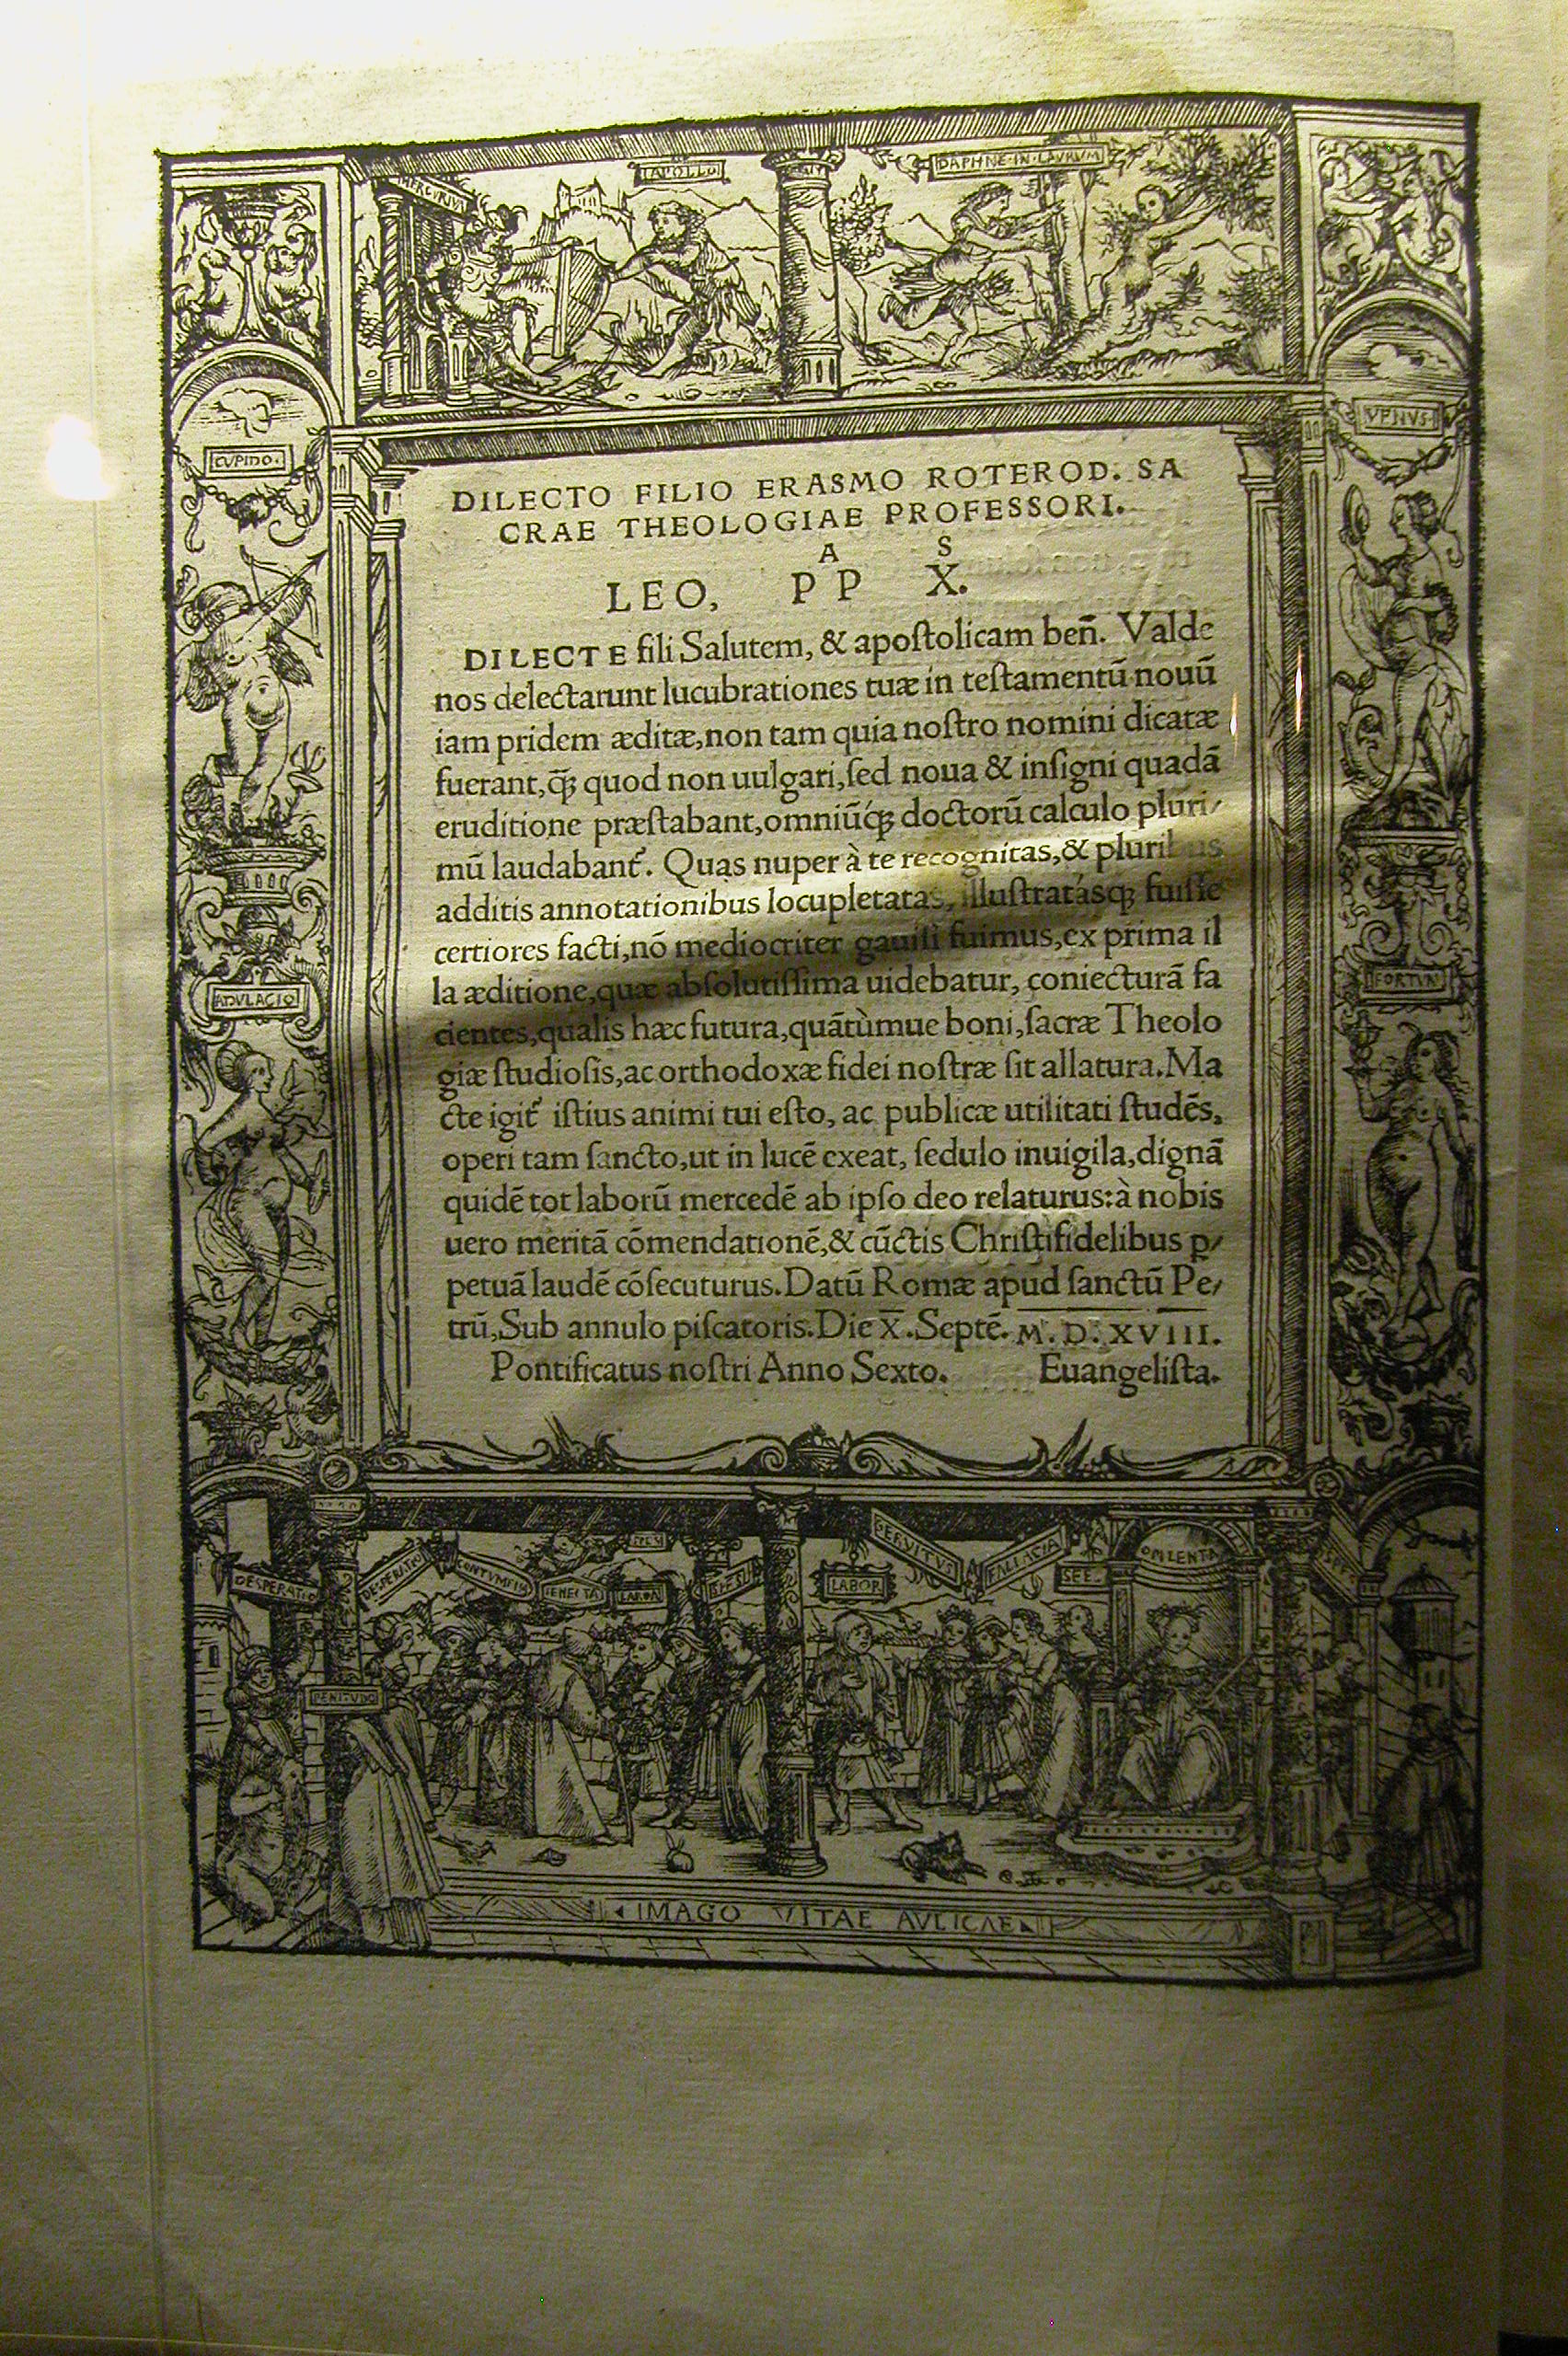 MERCVRIVS
APOLLO
DAPHNE·IN·LAVRVM
CVPIDO.
VENVS
DILECTO FILIO ERASMO ROTEROD. SA
CRAE THEOLOGIAE PROFESSORI.
A S
LEO, PP X.
DILECTE fili Salutem, & apoſtolicam ben̄. Valde
nos delectarunt lucubrationes tuæ in teſtamentū nouū
iam pridem æditæ,non tam quia noſtro nomini dicatæ
fuerant,q̄ꝫ quod non uulgari,ſed noua & inſigni quadā
eruditione præſtabant,omniūq́ꝫ doctorū calculo pluri/
mū laudabant᷑. Quas nuper à te recognitas,& pluribus
additis annotationibus locupletatas, illuſtratásqꝫ fuiſſe
certiores facti,nō mediocriter gauiſi fuimus,ex prima il
la æditione,quæ abſolutiſſima uidebatur, coniecturā fa
cientes,qualis hæc futura,quātùmue boni,ſacræ Theolo
giæ ſtudioſis,ac orthodoxæ fidei noſtræ ſit allatura.Ma
cte igit᷑ iſtius animi tui eſto, ac publicæ utilitati ſtudēs,
operi tam ſancto,ut in lucē exeat, ſedulo inuigila,dignā
quidē tot laborū mercedē ab ipſo deo relaturus:à nobis
uero meritā cōmendationē,& cūctis Chriſtifidelibus ꝑ/
petuā laudē cōſecuturus.Datū Romæ apud ſanctū Pe/
trū,Sub annulo piſcatoris.Die X̅.Septē. M. D. XVIII.
Pontificatus noſtri Anno Sexto. Euangeliſta.
ADVLACIO
FORTVN
DESPERATIO
DESPERATIO
CONTVMELIA
SENECTA
LABOR
SPES
SERVITVS
FALLACIA
OPVLENTA
PENITVDO
IMAGO VITAE AVLICAE